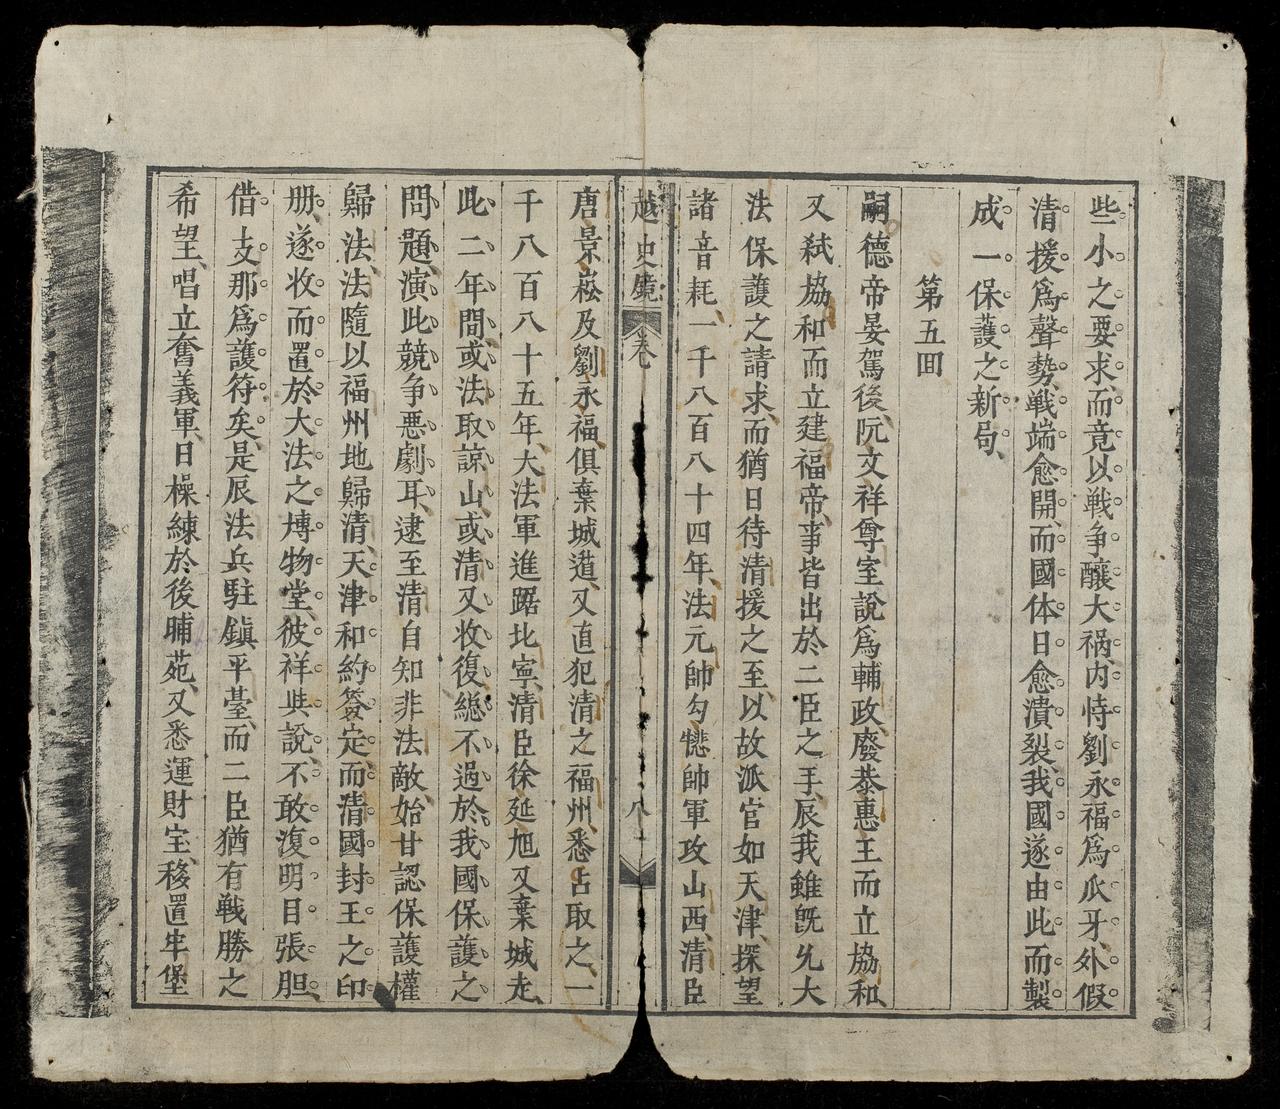 些小之要求、而竟以戦争釀大禍、内恃劉永福爲爪牙、外假
清援爲聲勢、戦端愈開、而國体日愈潰裂、我國遂由此而製
成一保護之新局、
第五囬
嗣德帝晏駕後、阮文祥尊室説爲輔政、廢恭惠王而立協和、
又弑協和而立建福帝、事皆出於二臣之手、辰我雖既允大
法保護之請求、而猶日待清援之至、以故派官如天津、探望
諸音耗、一千八百八十四年、法元帥勾𢠸帥軍攻山西、清臣
越史鏡 卷 八十
唐景崧及劉永福、俱棄城遁、又直犯清之福州、悉占取之、一
千八百八十五年、大法軍進踞北寧、清臣徐延旭又棄城走、
此二年間、或法取諒山、或清又收復、緫不過於我國保護之
問題、演此競争悪劇耳、逮至清自知非法敵、始甘認保護權
歸法、法隨以福州地歸清、天津和約簽定、而清國封王之印
册、遂收而置於大法之博物堂、彼祥與説、不敢復明目張胆、
借支那爲護符矣、是辰法兵駐鎮平臺、而二臣猶有戦勝之
希望、唱立奮義軍、日操練於後晡苑、又悉運財宝、移置牢堡